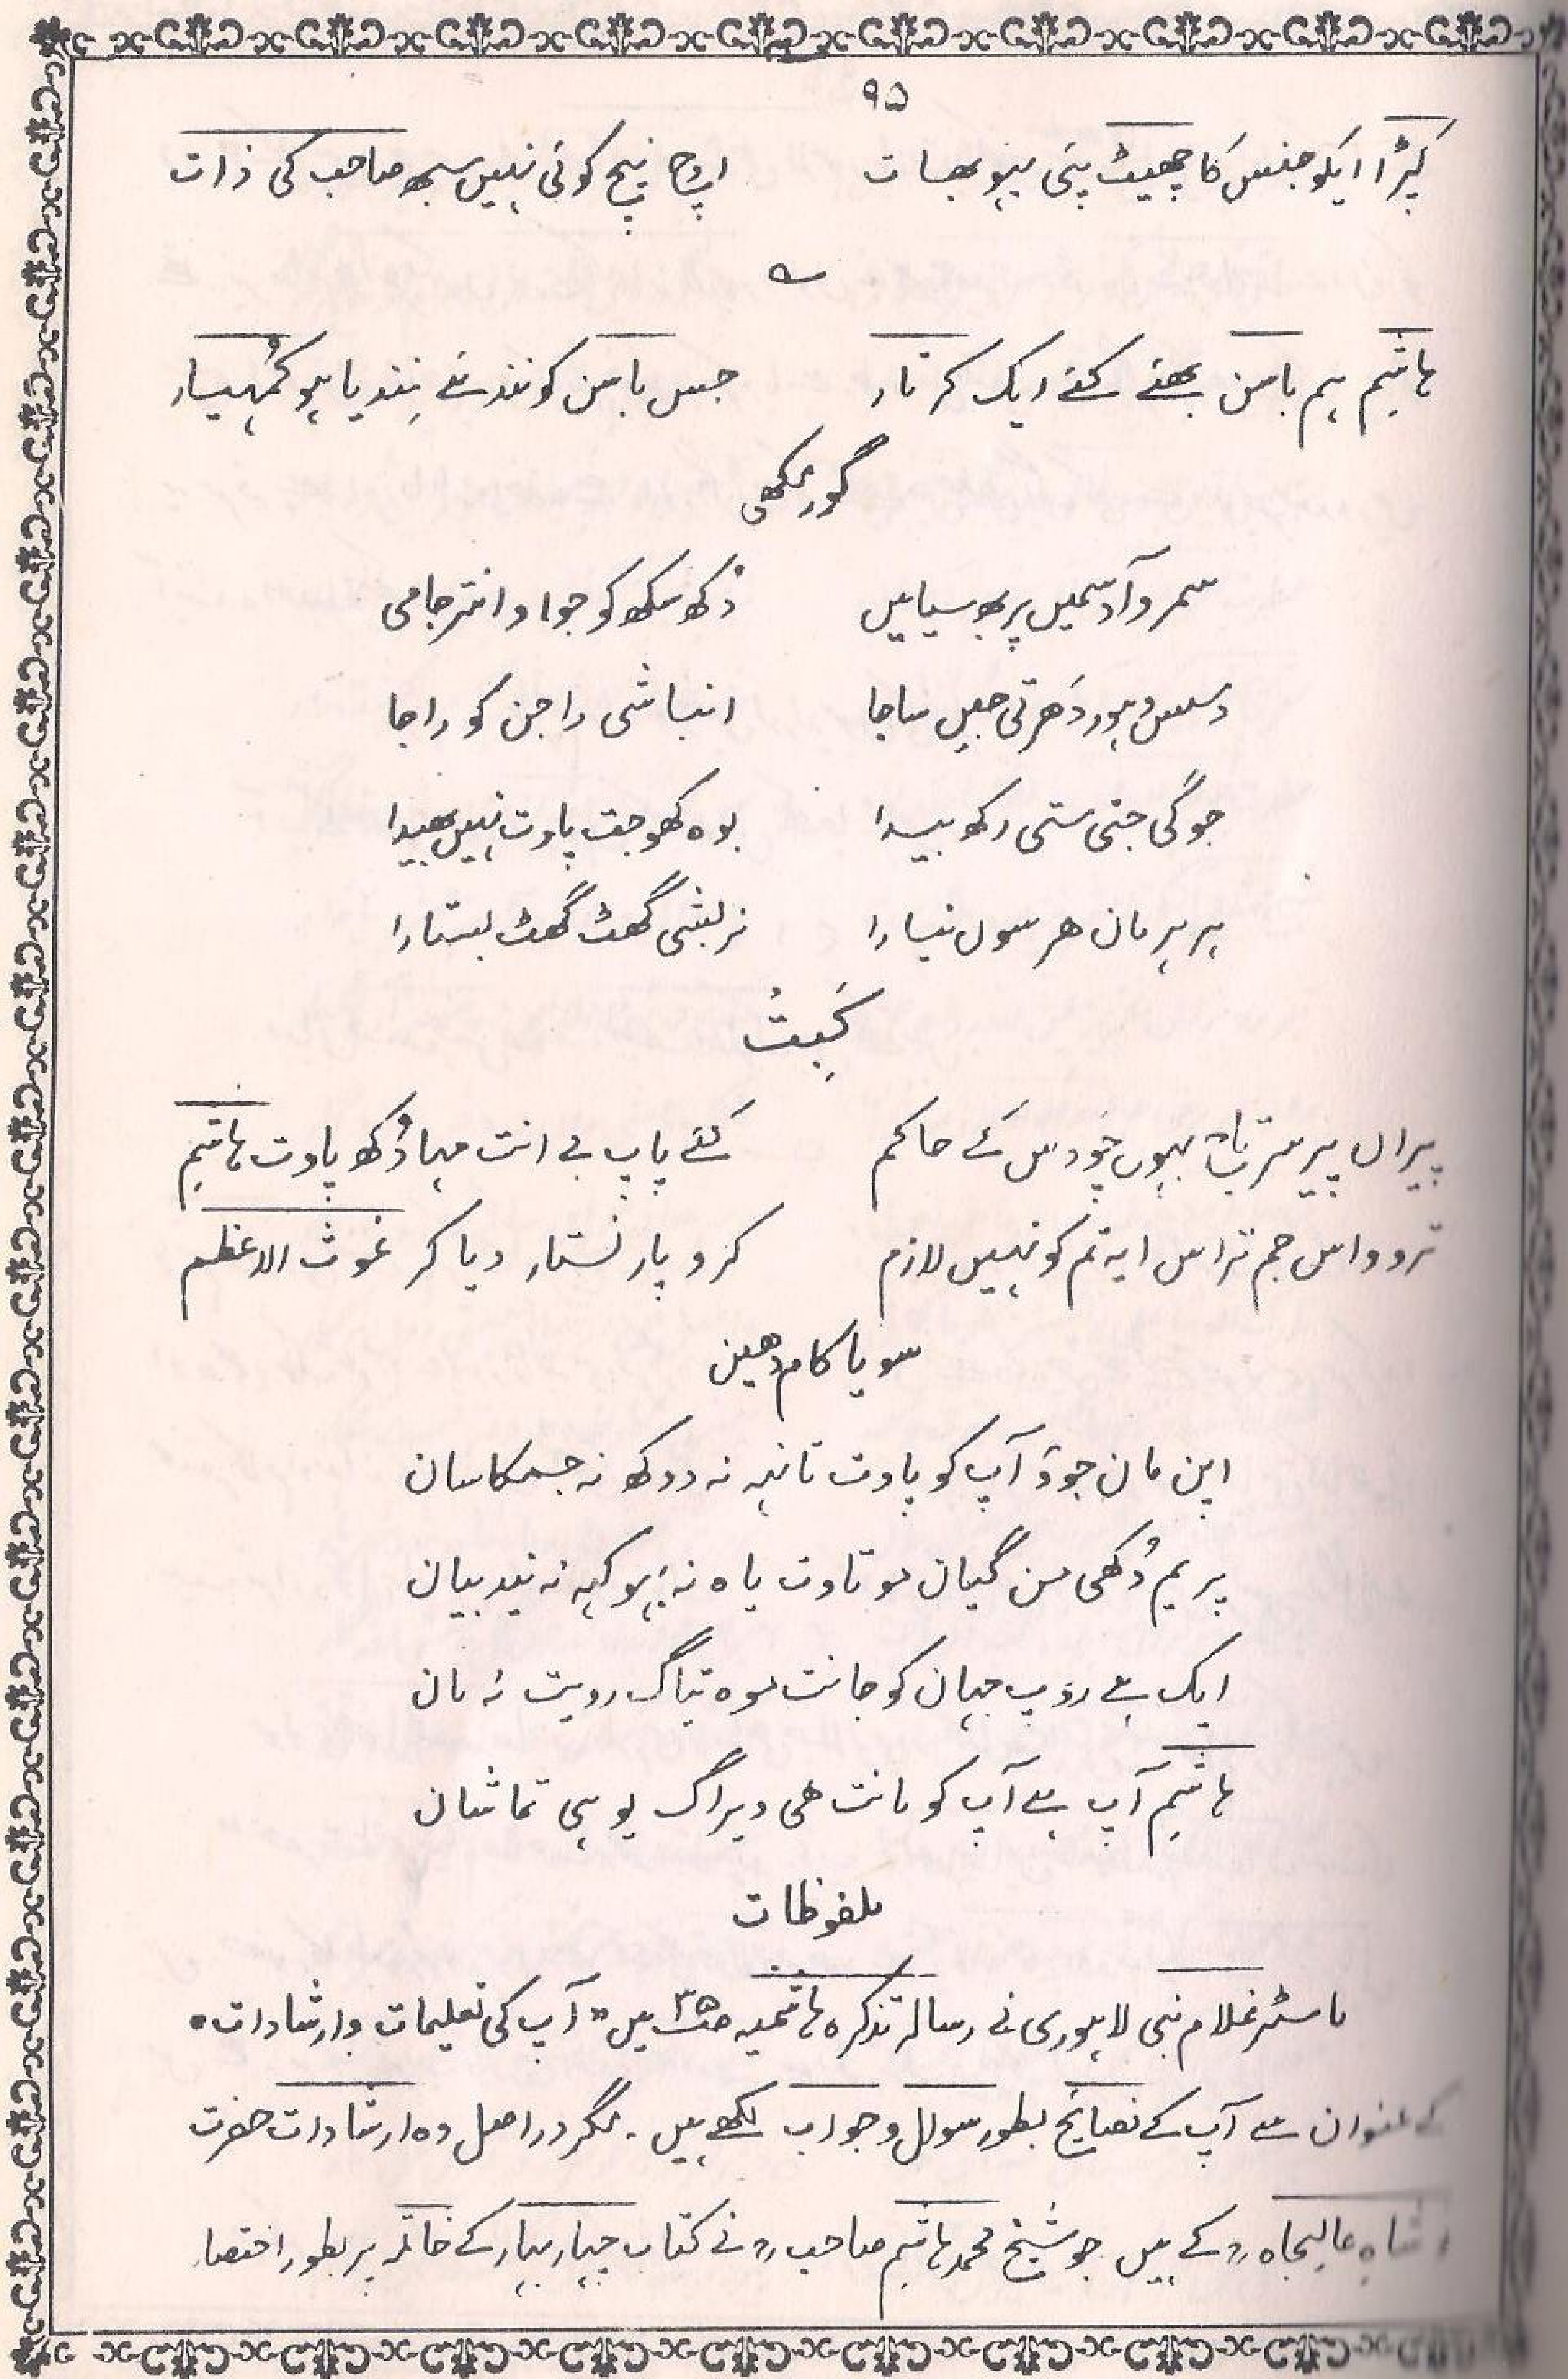 ۹۵
کپڑا ایکو جنس کا چھیٹ پئی بہو بھات اوچ نیچ کوئی نہیں سبھ صاحب کی ذات
ہاشم ہم باسن بھئے کئے ایک کرتار جس باسن کو نندئے نندیا ہو کمہیار
گورمکھی
سمرو آد سمیں پربھ سیائیں دُکھ سکھ کو جو او انترجامی
دھرتی جیں ساجا انباشی راجن کو راجا
جوگی جتی ستی رکھ بیدا بوہ کھوجت پاوت نہیں بھیدا
ہر ہر مان ھر سوں نیارا نربشی گھٹ گھٹ بستارا
کَبِتُ
پیراں پیر بہوں چودس کے حاکم کئے پاپ بے انت مہا دُکھ پاوت ہاشم
ترو واس جم تراس ایہ تم کو نہیں لازم کرو پار نستار دیا کر غوث الاعظم
سویا کام دھین
اپن مان جوؤ آپ کو پاوت تانہہ نہ دوکھ نہ جسکاسان
پریم دُکھی من گیان سو تاوت یاہ نہ ہو کہہ نہ نید بیان
ایک ہے روپ جہان کو جانت سوہ تیاگ رویت نہ مان
ہاشم آپ ہے آپ کو مانت ھی ویراگ یوہی تماشان
ملفوظات
ماسٹر غلام نبی لاہوری نے رسالہ تذکرہ ہاشمیہ ص۳۵ میں "آپ کی تعلیمات و ارشادات"
کے عنوان سے آپ کے نصایح بطور سوال و جواب لکھے ہیں۔ مگر دراصل وہ ارشادات حضرت
شاہِ عالیجاہ رہ کے ہیں جو شیخ محمد ہاشم صاحب رہ نے کتاب چہار بہار کے خاتمہ پر بطور اختصار